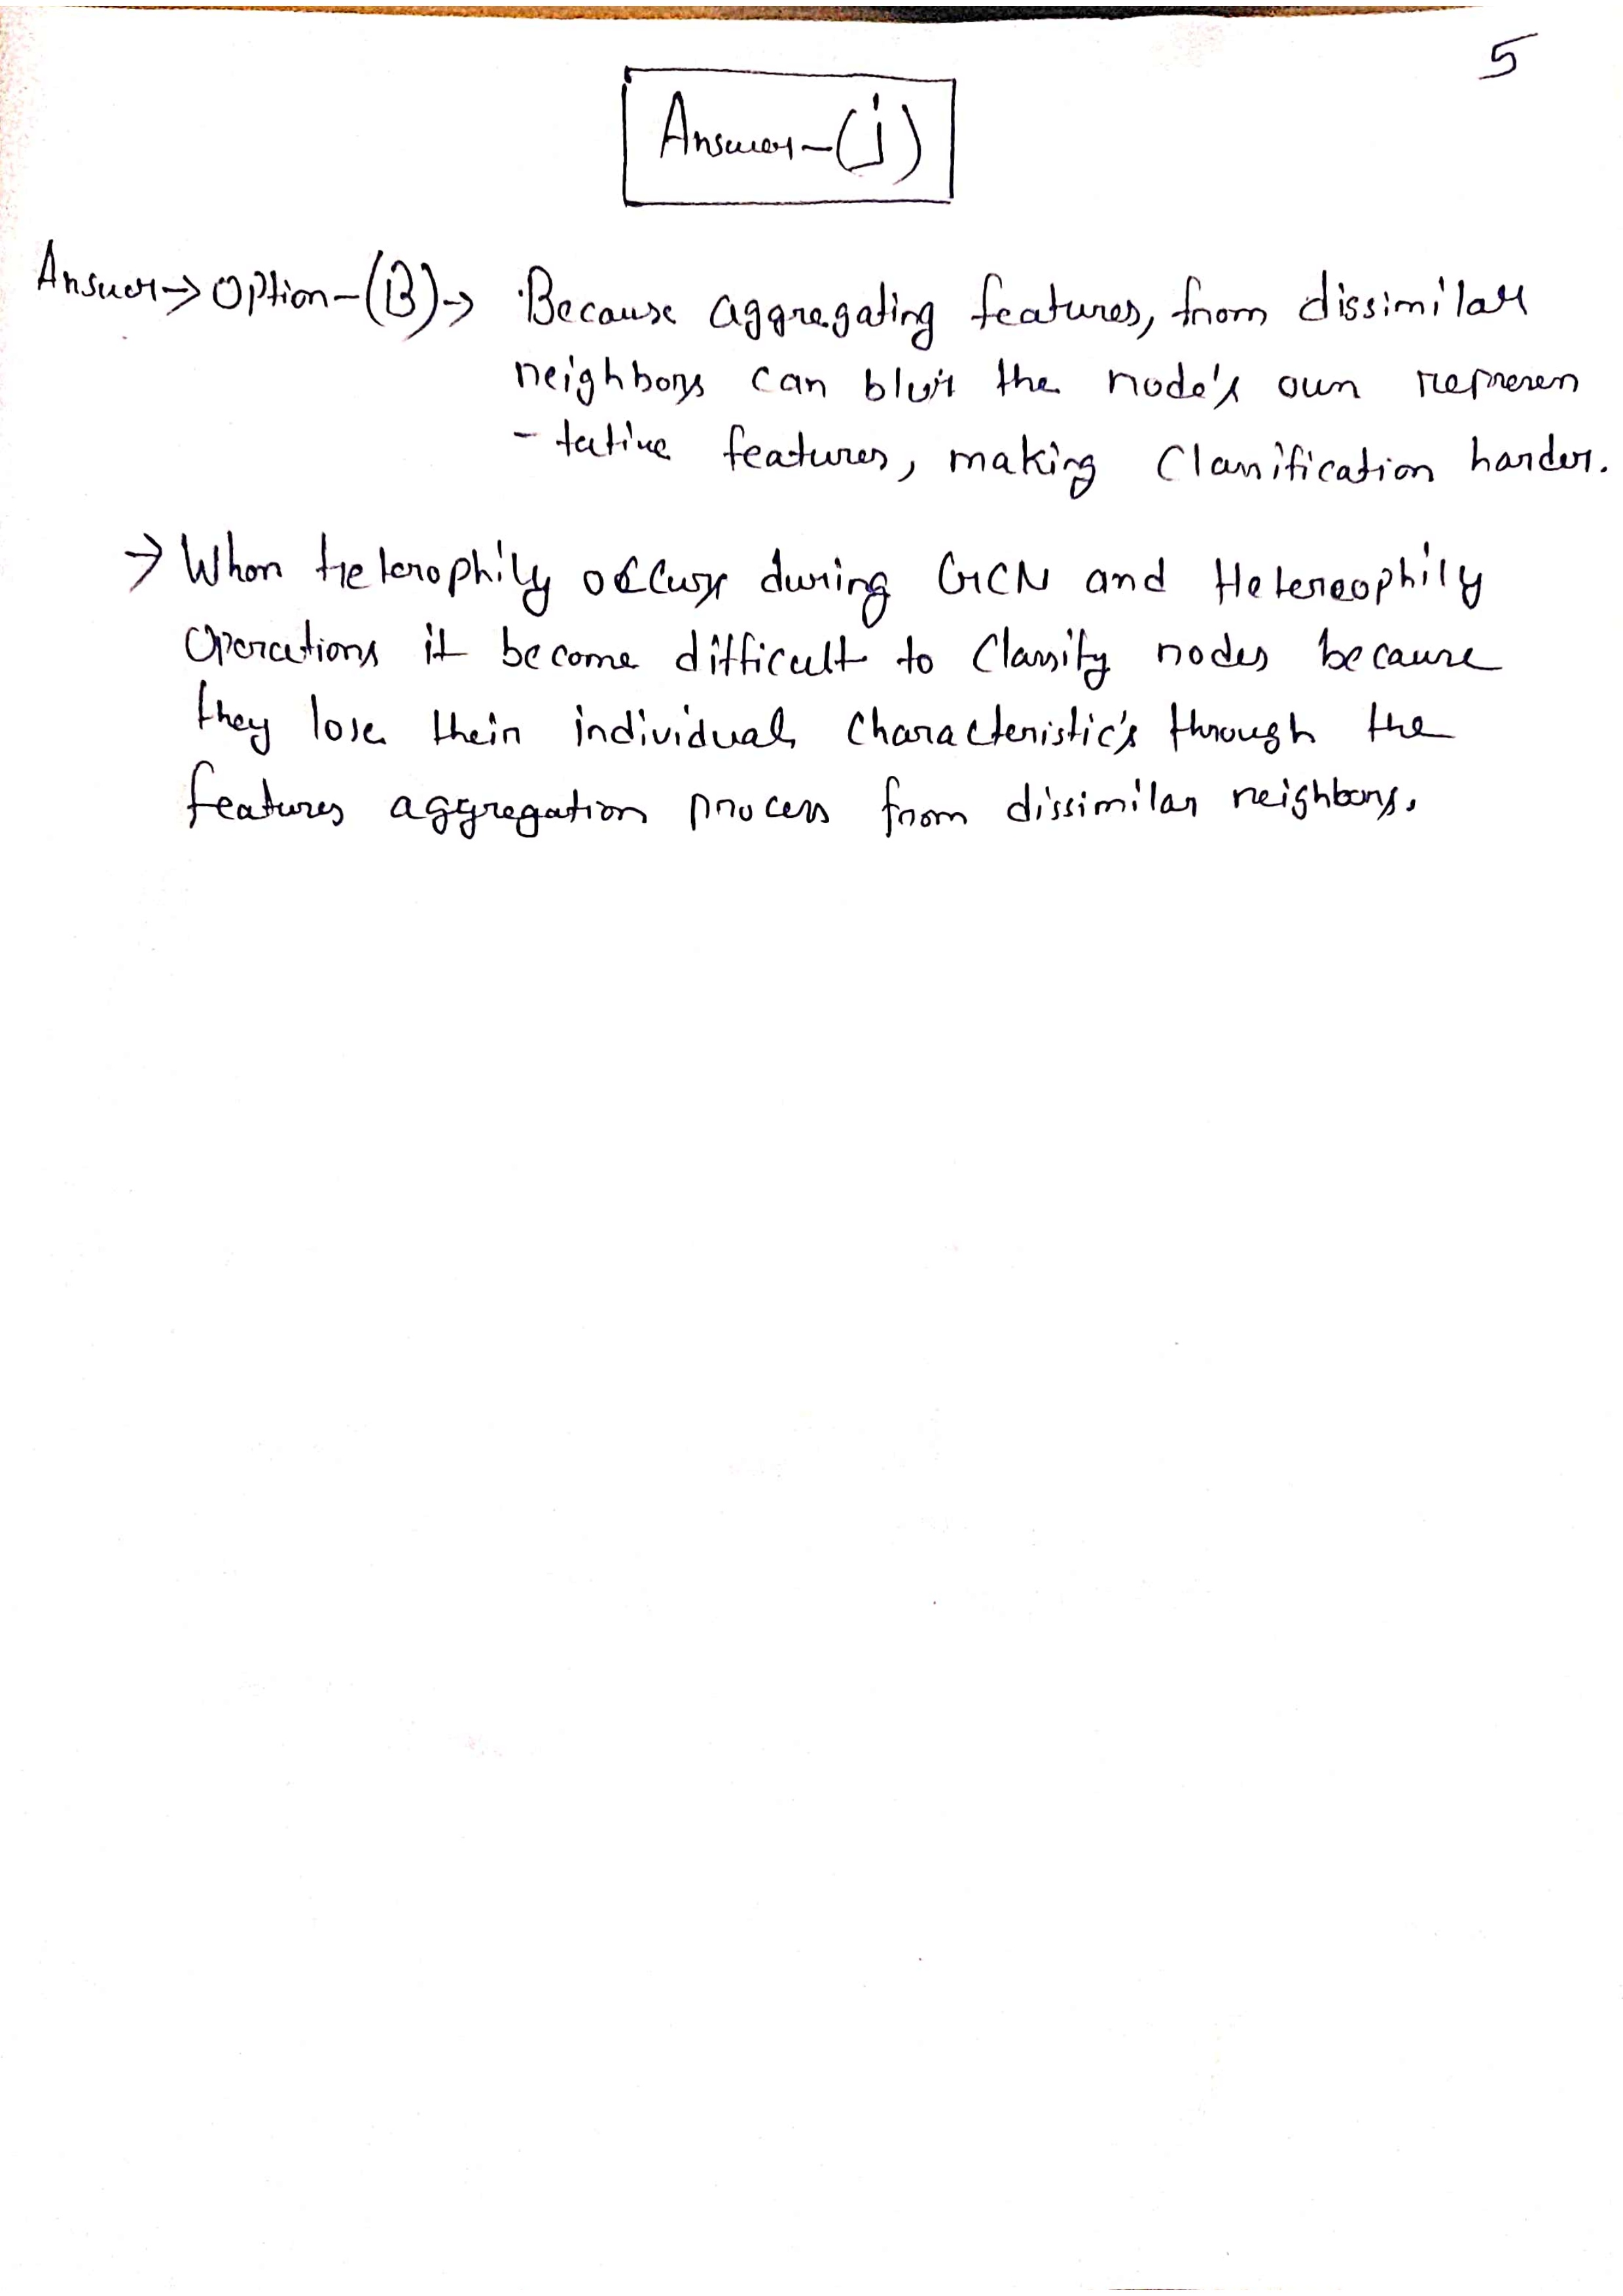 5
Answer-(j)
Answer→ Option-(B)→ Because aggregating features, from dissimilar
neighbors can blur the node's own represen
- tative features, making Classification harder.
→ When Heterophily occurs during GCN and Hetereophily
Operations it become difficult to Classify nodes because
they lose their individual Characteristic's through the
features aggregation process from dissimilar neighbors.